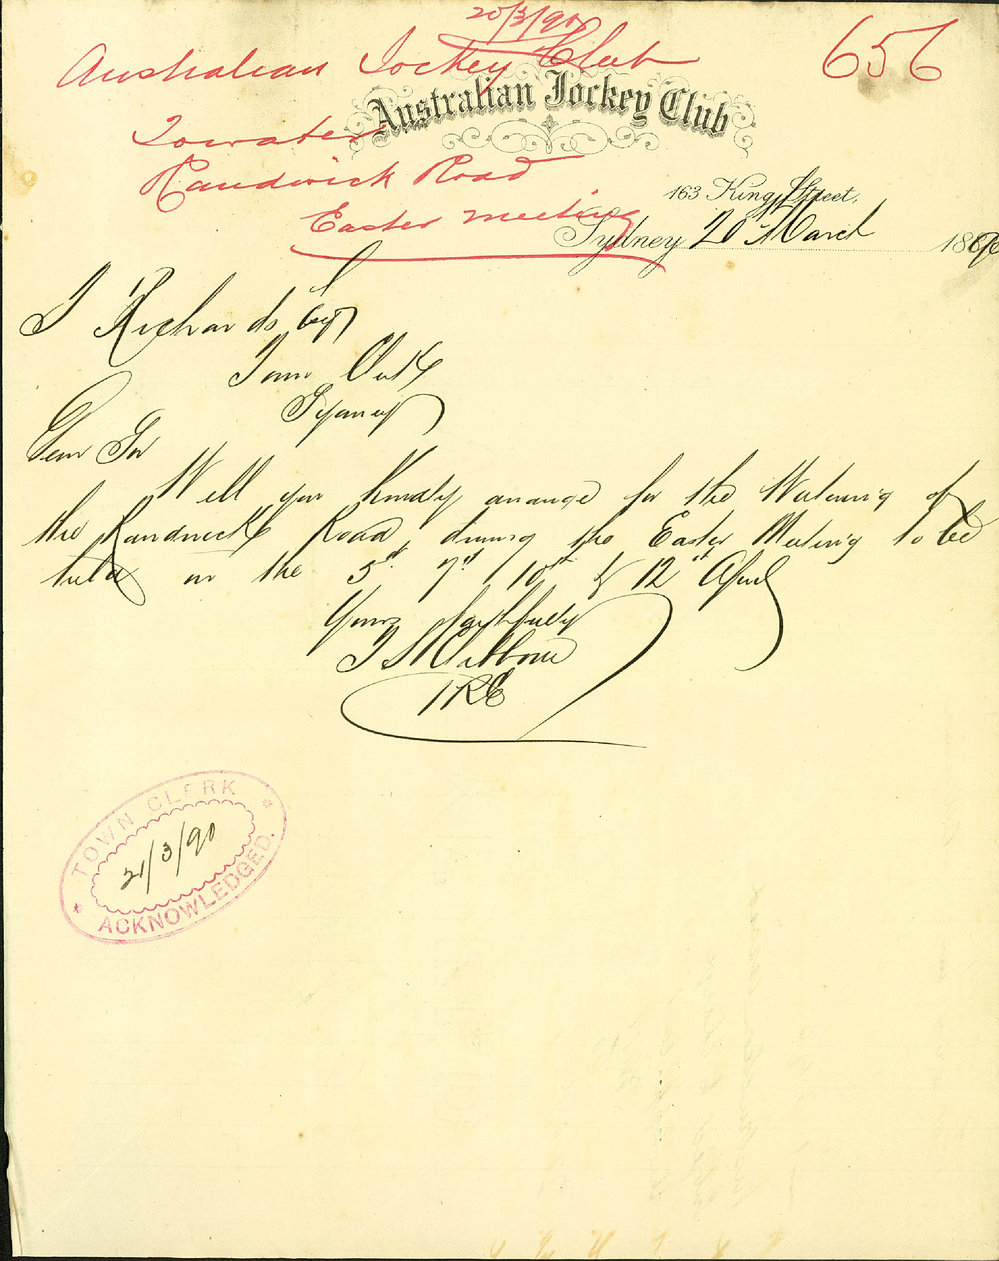 20/3/90
656
Australian Jockey Club
Australian Jockey Club
To water
Randwick Road
Easter meeting
163 King Street,
Sydney 20 March 1890
Richards Esqr
Town Clerk
Sydney
Dear Sir
Will you kindly arrange for the Watering of
the Randwick Road during the Easter Meeting to be
held on the 5th 7th 10th & 12th April
Yours faithfully
T S Clibborn
TOWN CLERK
21/3/90
ACKNOWLEDGED.